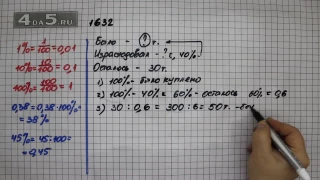 4DA5.RU
1632
Было - ? г.
Израсходовал - ? г, 40%
Осталось - 30 г.
1) 100% - было куплено
2) 100% - 40% = 60% - осталось 60% = 0,6
3) 30 : 0,6 = 300 : 6 = 50 г. - был
1% = 1/100 = 0,01
10% = 10/100 = 0,1
100% = 100/100 = 1
0,38 = 0,38·100% =
= 38%
45% = 45:100 =
= 0,45